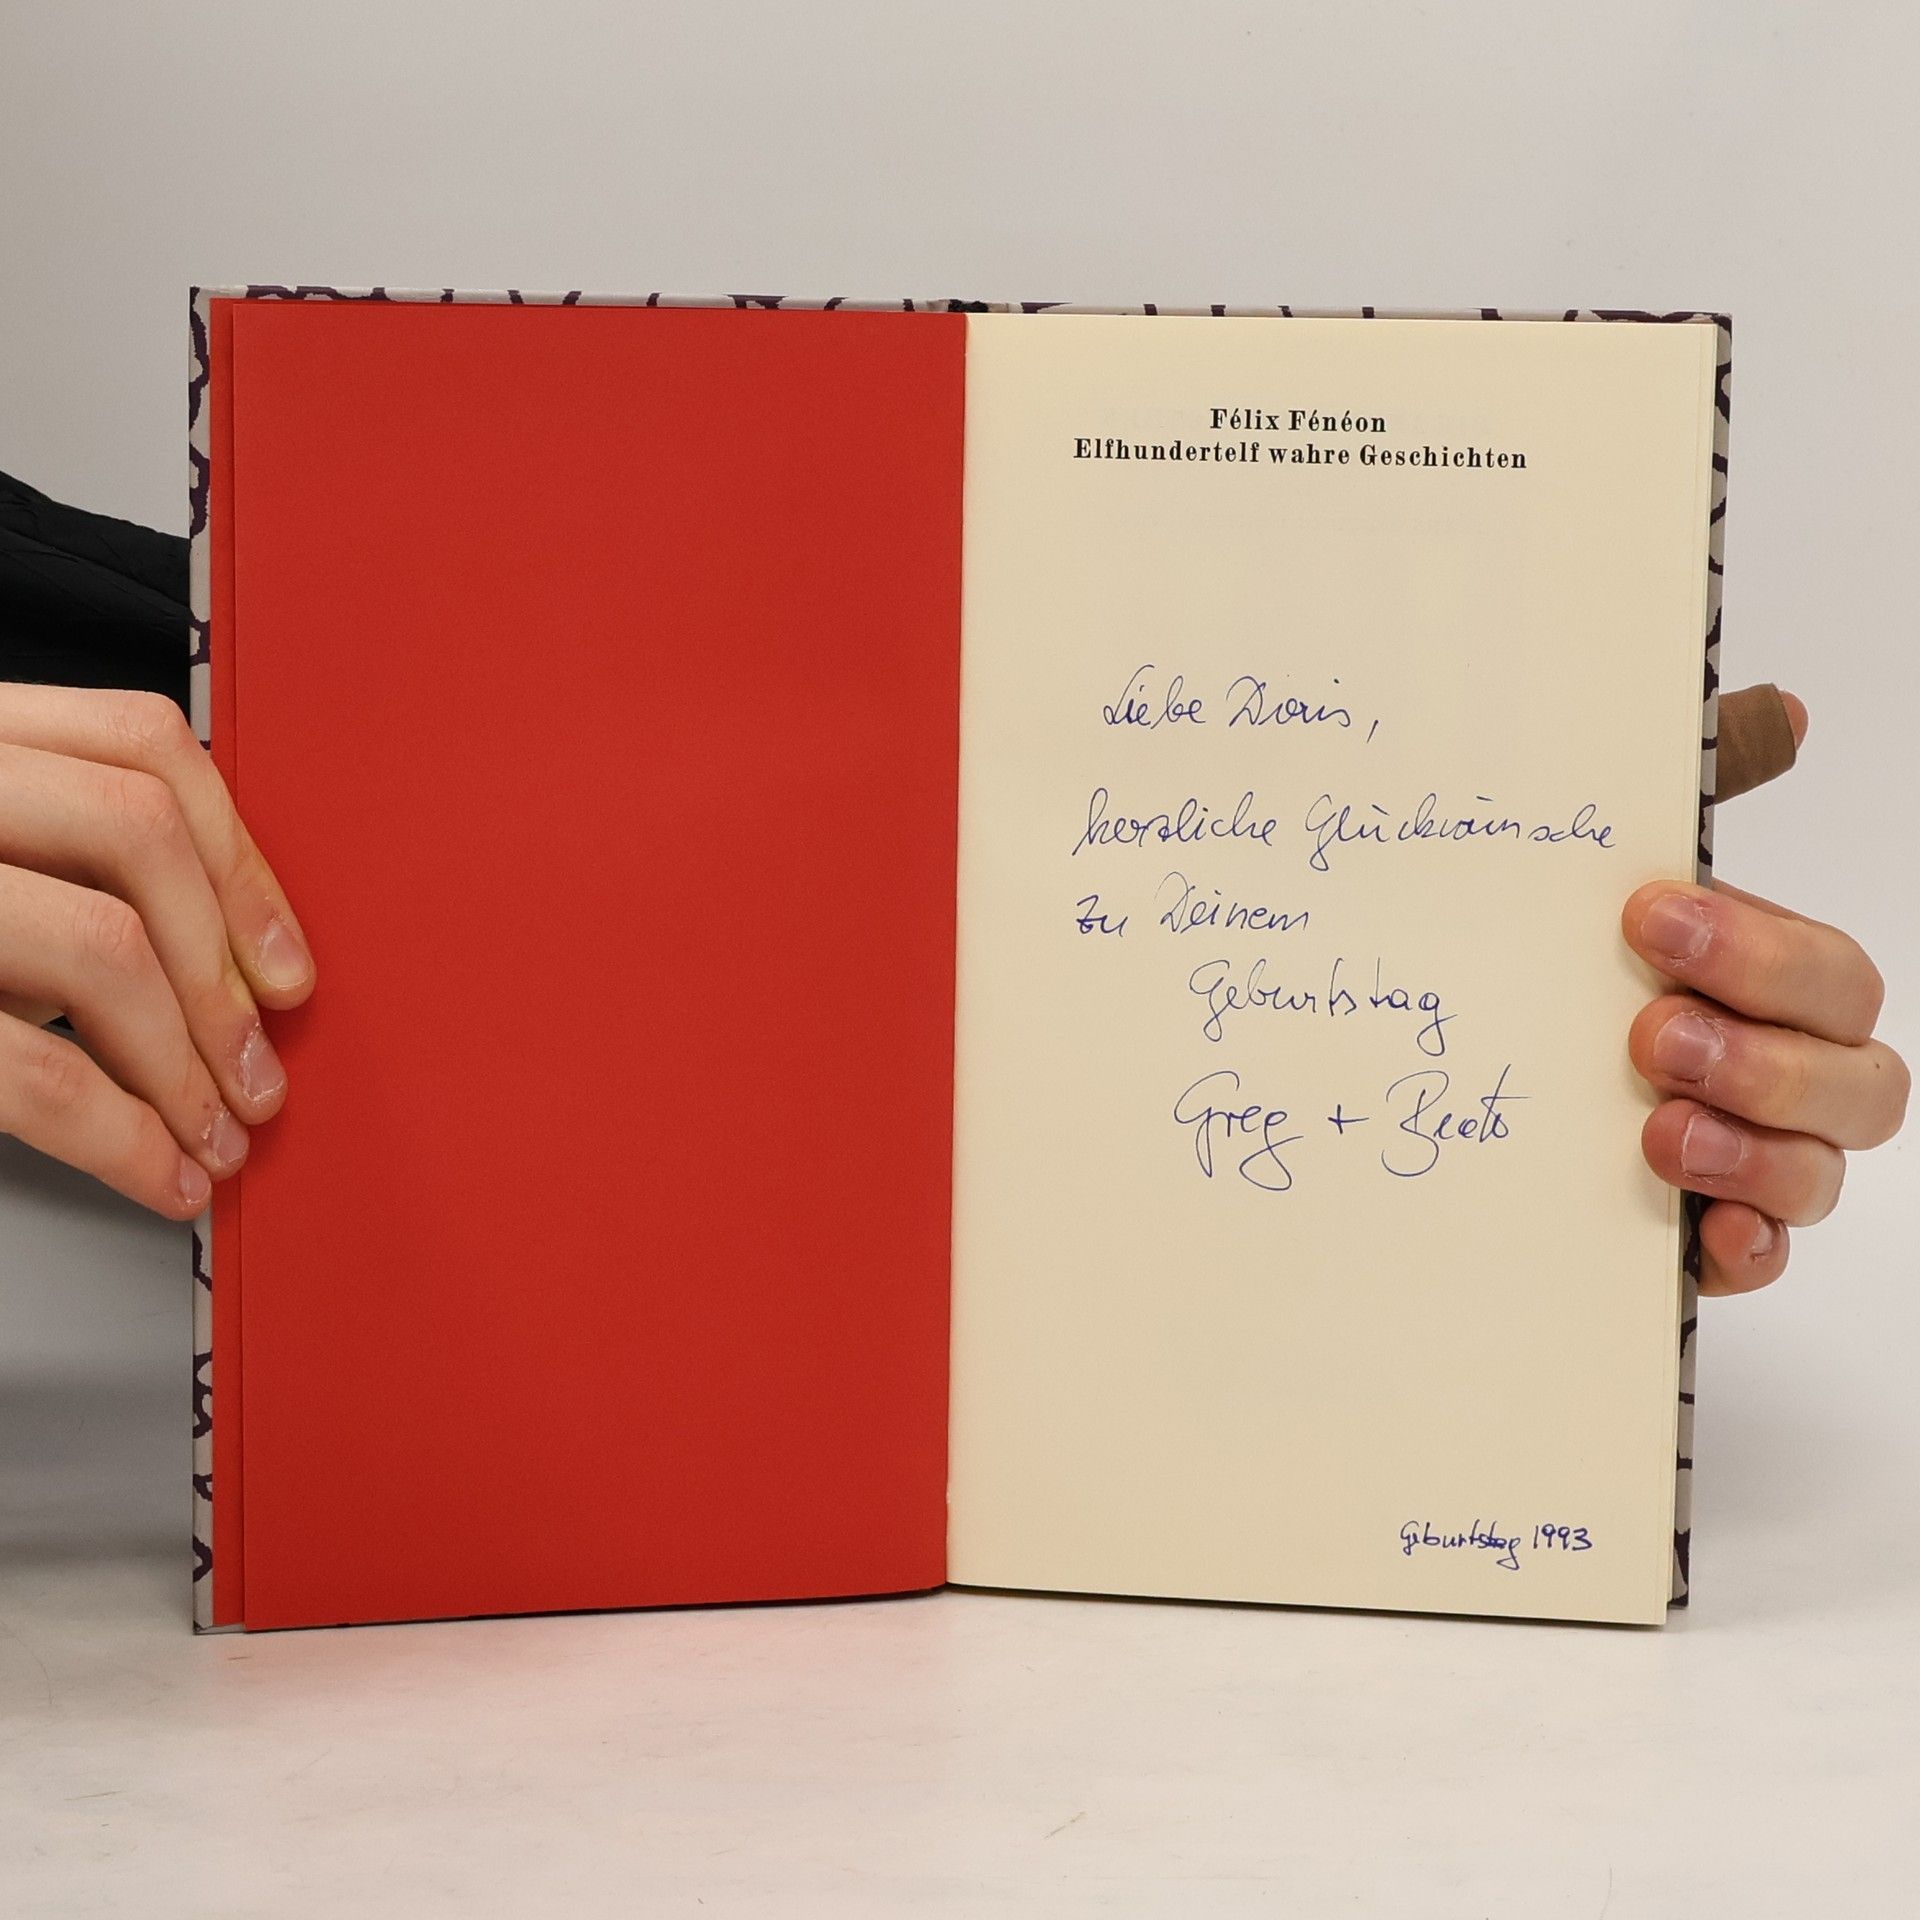 Félix Fénéon
Elfhundertelf wahre Geschichten
Liebe Doris,
herzliche Glückwünsche
zu Deinem
Geburtstag
Greg + Beate
Geburtstag 1993